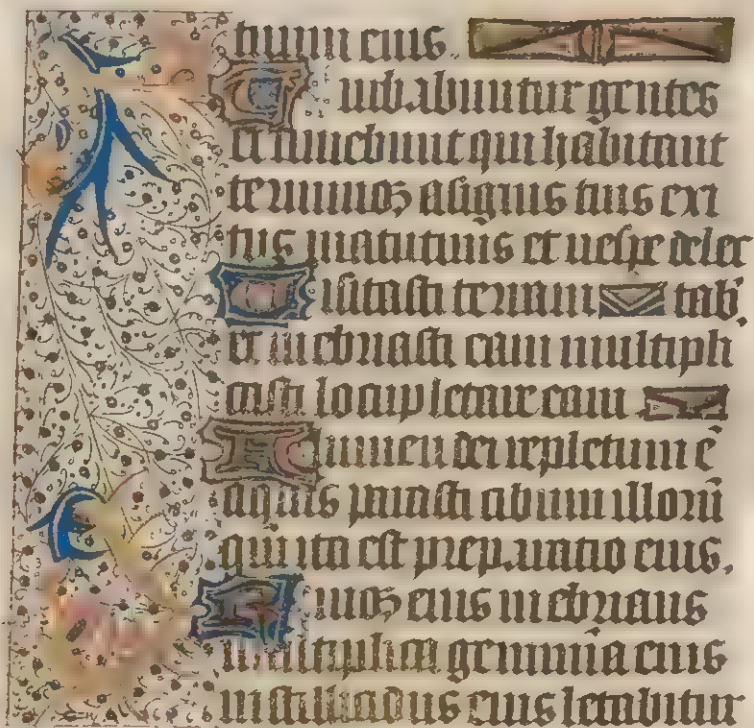 ctuum eius.
Turbabuntur gentes
et timebunt qui habitant
terminos a signis tuis exi
tus matutini et uespe delec
Uisitasti terram tab.
et inebriasti eam multipli
casti locupletare eam
Flumen dei repletum ē
aquis parasti cibum illorū
qm̄ ita est preparatio eius.
Riuos eius inebrians
multiplica genimīa eius
in stillicidiis eius letabitur